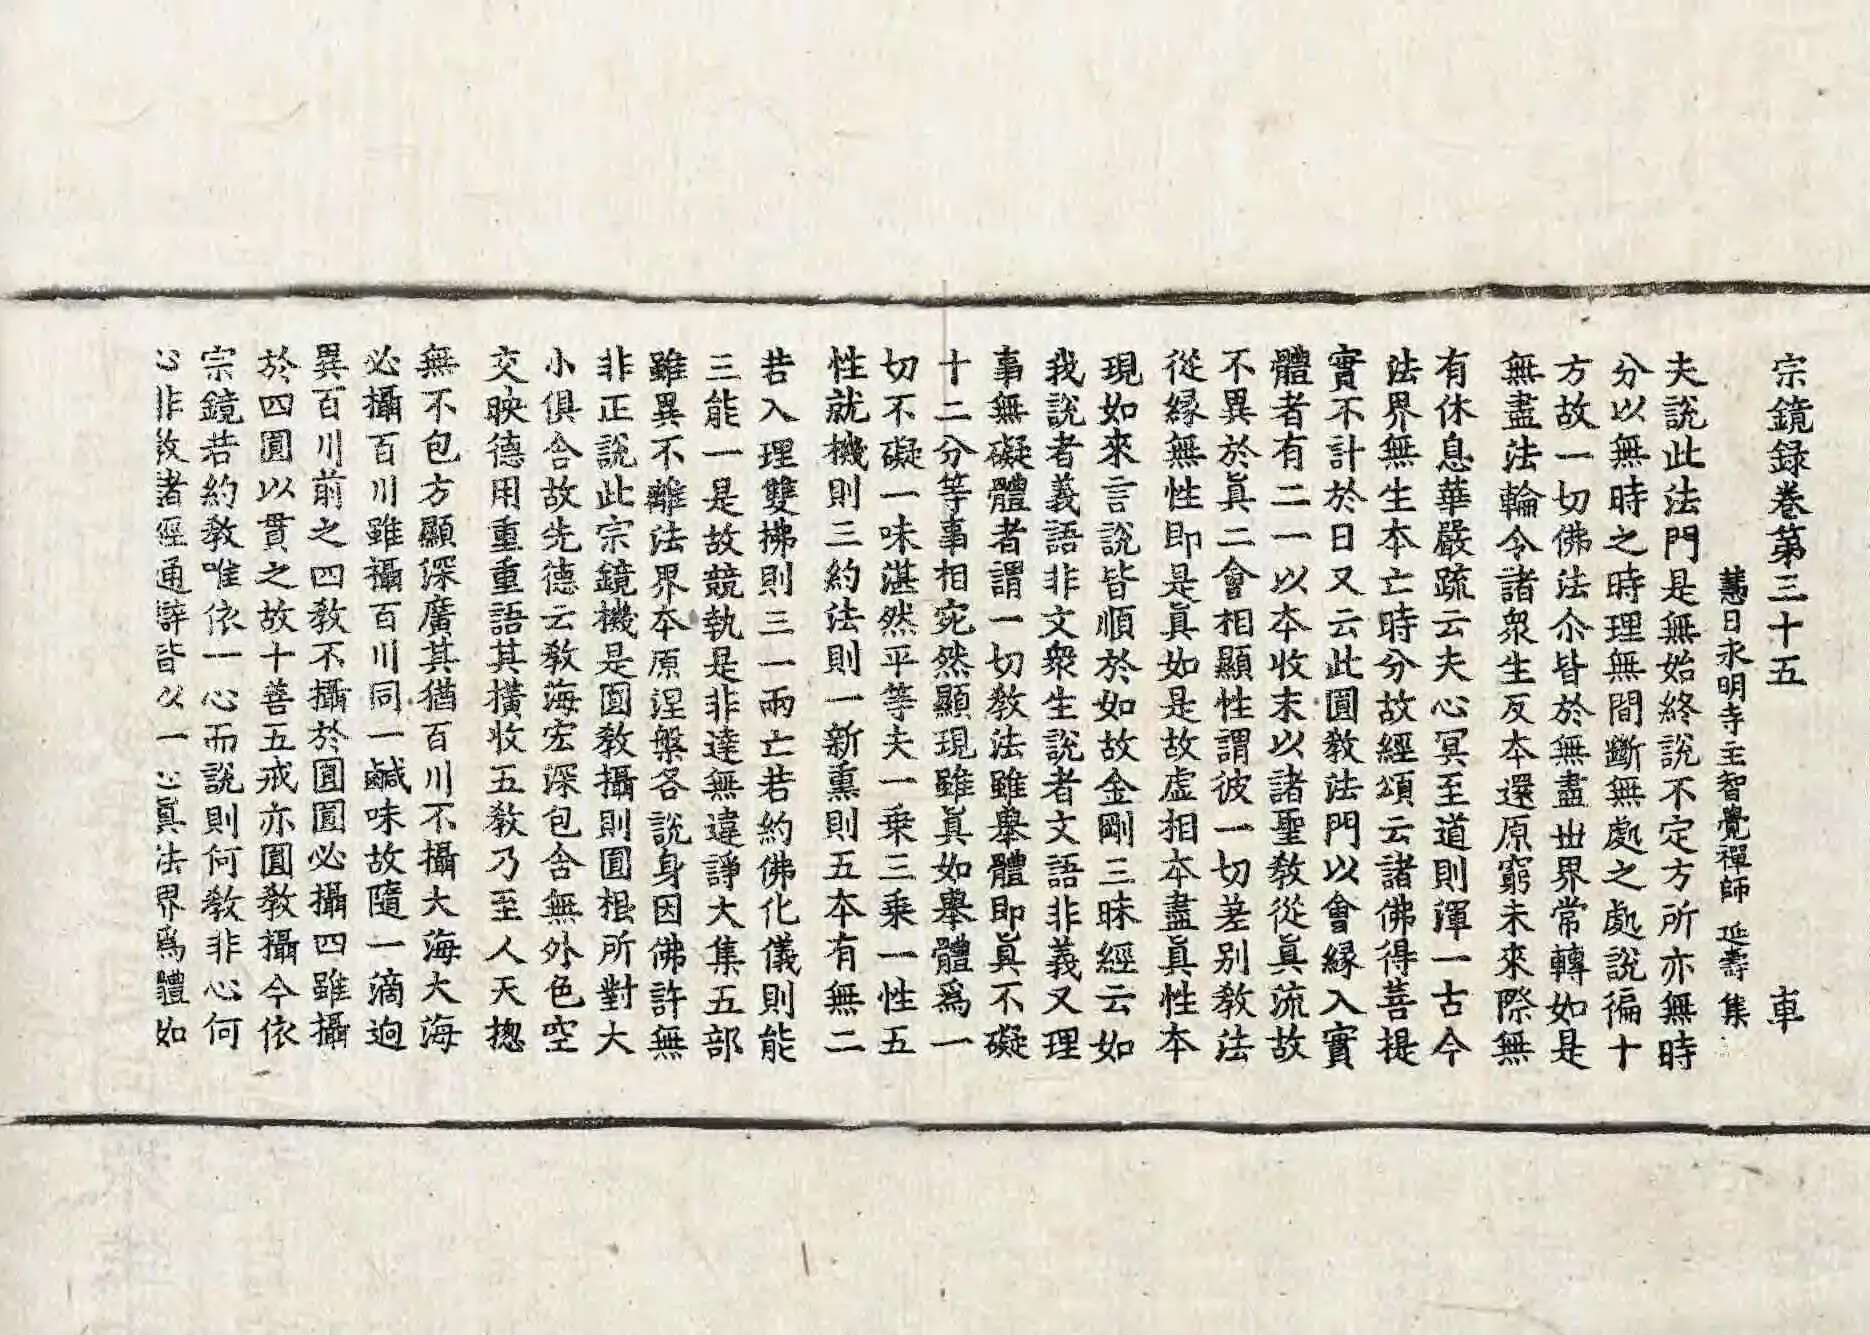 宗鏡錄卷第三十五 車
慧日永明寺主智覺禪師 延壽 集
夫說此法門是無始終說不定方所亦無時
分以無時之時理無間斷無處之處說徧十
方故一切佛法尒皆於無盡世界常轉如是
無盡法輪令諸衆生反本還原窮未來際無
有休息華嚴疏云夫心冥至道則渾一古今
法界無生本亡時分故經頌云諸佛得菩提
實不計於日又云此圓教法門以會緣入實
體者有二一以本收末以諸聖教從眞流故
不異於眞二會相顯性謂彼一切差別教法
從緣無性即是眞如是故虛相本盡眞性本
現如來言說皆順於如故金剛三昧經云如
我說者義語非文衆生說者文語非義又理
事無礙體者謂一切教法雖舉體即眞不礙
十二分等事相宛然顯現雖眞如舉體爲一
切不礙一味湛然平等夫一乘三乘一性五
性就機則三約法則一新熏則五本有無二
若入理雙拂則三一兩亡若約佛化儀則能
三能一是故競執是非達無違諍大集五部
雖異不離法界本原涅槃各說身因佛許無
非正說此宗鏡機是圓教攝則圓根所對大
小俱含故先德云教海宏深包含無外色空
交映德用重重語其橫收五教乃至人天揔
無不包方顯深廣其猶百川不攝大海大海
必攝百川雖攝百川同一鹹味故隨一滴迥
異百川前之四教不攝於圓圓必攝四雖攝
於四圓以貫之故十善五戒亦圓教攝今依
宗鏡若約教唯依一心而說則何教非心何
心非教諸經通辯皆以一心眞法界爲體如